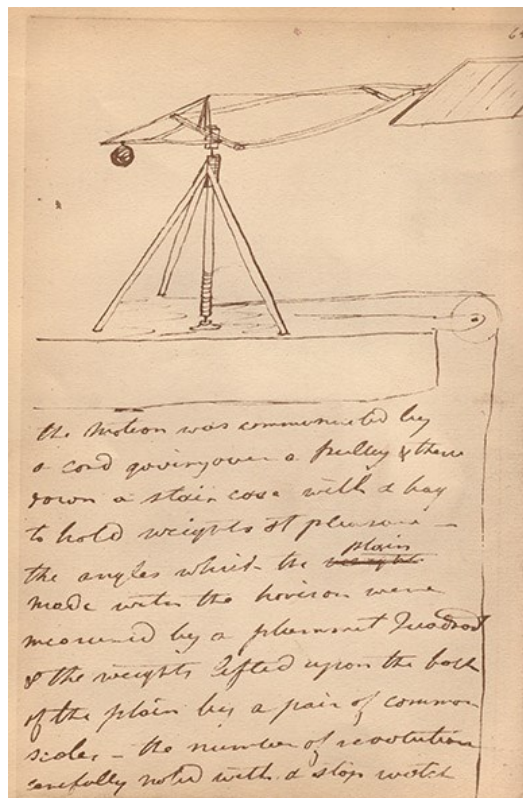 6
the motion was communicated by
a cord going over a pulley & then
down a stair case with a bag
to hold weights at pleasure —
the angles which the weight plain
made with the horison were
measured by a plummet Quadrant
& the weights lifted upon the back
of the plain by a pair of common
scales — the number of revolutions
carefully noted with a stop watch